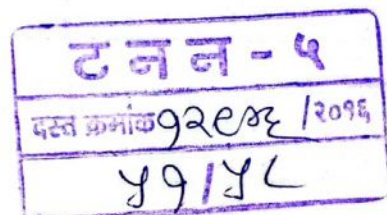 ट न न - ५
दस्त क्रमांक १२९४६ /२०१६
५१/५८